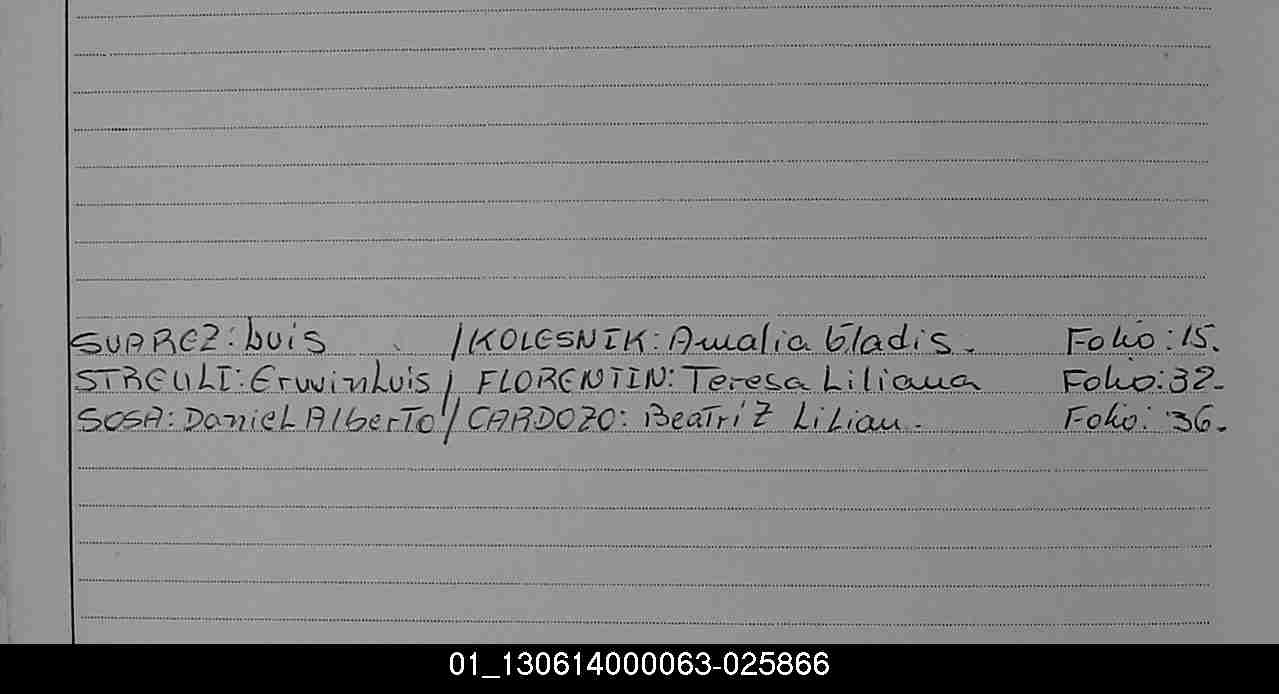 SUAREZ: Luis /KOLESNIK: Amalia Gladis. Folio: 15.
STREULI: Eruvin Luis / FLORENTIN: Teresa Liliana Folio: 32-
SOSA: Daniel Alberto / CARDOZO: Beatriz Lilian. Folio: 36.
01_130614000063-025866